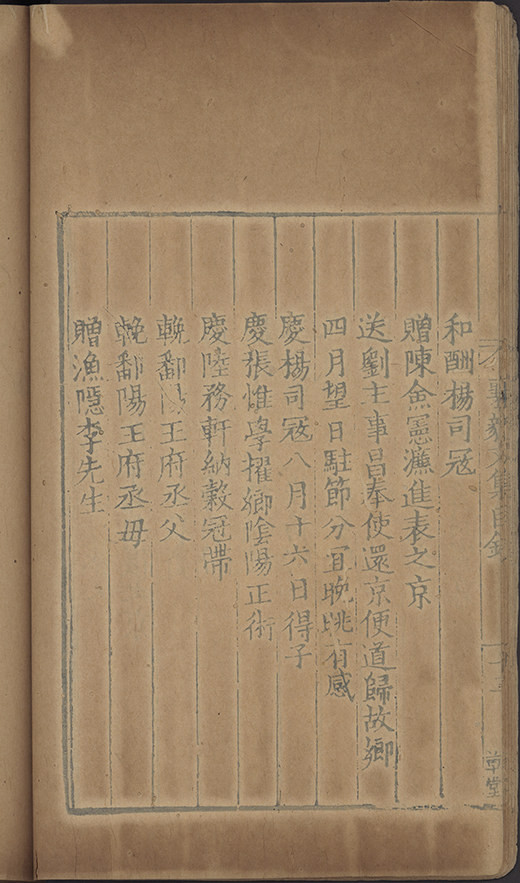 和酬楊司寇
贈陳僉憲濂進表之京
送劉主事昌奉使還京便道歸故鄉
四月望日駐節分宜晚眺有感
慶楊司寇八月十六日得子
慶張惟學擢鄉陰陽正術
慶陸務軒納穀冠帶
輓鄱陽王府丞父
輓鄱陽王府丞母
贈漁隱李先生
文集目錄
草堂